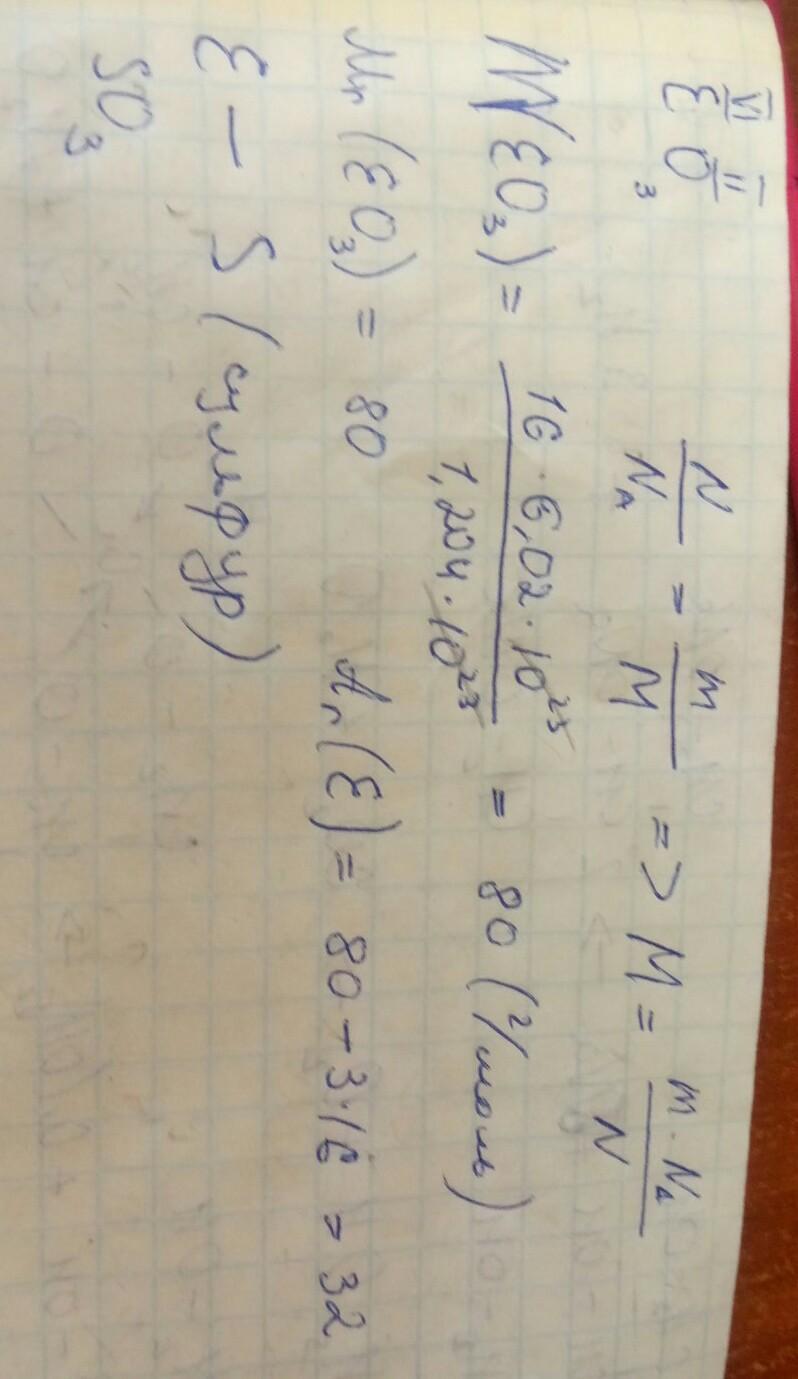 VI II
EO₃
N/Nₐ = m/M => M = m · Nₐ/N
M(EO₃) = 16 · 6,02 · 10²³/1,204 · 10²³ = 80 (г/моль)
Mr(EO₃) = 80 Ar(E) = 80 - 3·16 = 32
E — S (сульфур)
SO₃